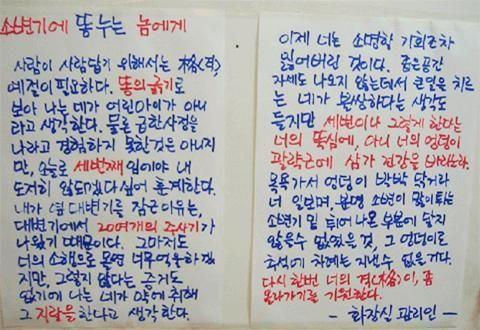 소변기에 똥누는 놈에게
사람이 사람답기 위해서는 格(격),
예절이 필요하다. 똥의 굵기로
보아 나는 네가 어린아이가 아니
라고 생각한다. 물론 급한사정을
나라고 경험하지 못한것은 아니지
만, 오늘로 세번째 임에야 내
도저히 않되겠다싶어 훈계한다.
내가 옆 대변기를 잠근이유는,
대변기에서 20여개의 주사기가
나왔기 때문이다. 그마저도
너의 소행으로 몰면 너무억울하겠
지만, 그렇지 않다는 증거도
없기에 나는 네가 약에 취해
그 지랄을 한다고 생각한다.
이제 너는 소명할 기회조차
잃어버린 것이다. 좁은공간
자세도 나오지 않는데서 큰일을 치르
는 네가 환상하다는 생각도
들지만 세번이나 그렇게 한다는
너의 뚝심에, 아니 너의 엉덩이
괄약근에 삼가 건강을 바라노라.
목욕가서 엉덩이 박박 닦거라
너 일보며, 분명 소변이 많이튀는
소변기 밑 튀어 나온 부분에 닿지
않을수 없었을 것, 그 엉덩이로
추석에 차례는 지내수 없을거다.
다시 한번 너의 격(格)이, 좀
올라가기를 기원한다.
- 화장실 관리인 -